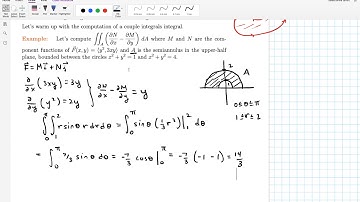 Let's warm up with the computation of a couple integrals integral.
Example: Let's compute ∬_R (∂N/∂x − ∂M/∂y) dA where M and N are the com-
ponent functions of F⃗(x, y) = ⟨y², 3xy⟩ and A is the semiannulus in the upper-half
plane, bounded between the circles x² + y² = 1 and x² + y² = 4.
F⃗ = Mî + Nĵ
∂/∂x (3xy) = 3y
∂/∂y (y²) = 2y
∂N/∂x − ∂M/∂y = y
2
A
0≤θ≤π
1≤r≤2
∫₀^π ∫₁² r sinθ r dr dθ = ∫₀^π sinθ (1/3 r³)|₁² dθ
= ∫₀^π 7/3 sinθ dθ = −7/3 cosθ |₀^π = −7/3 (−1 −1) = 14/3